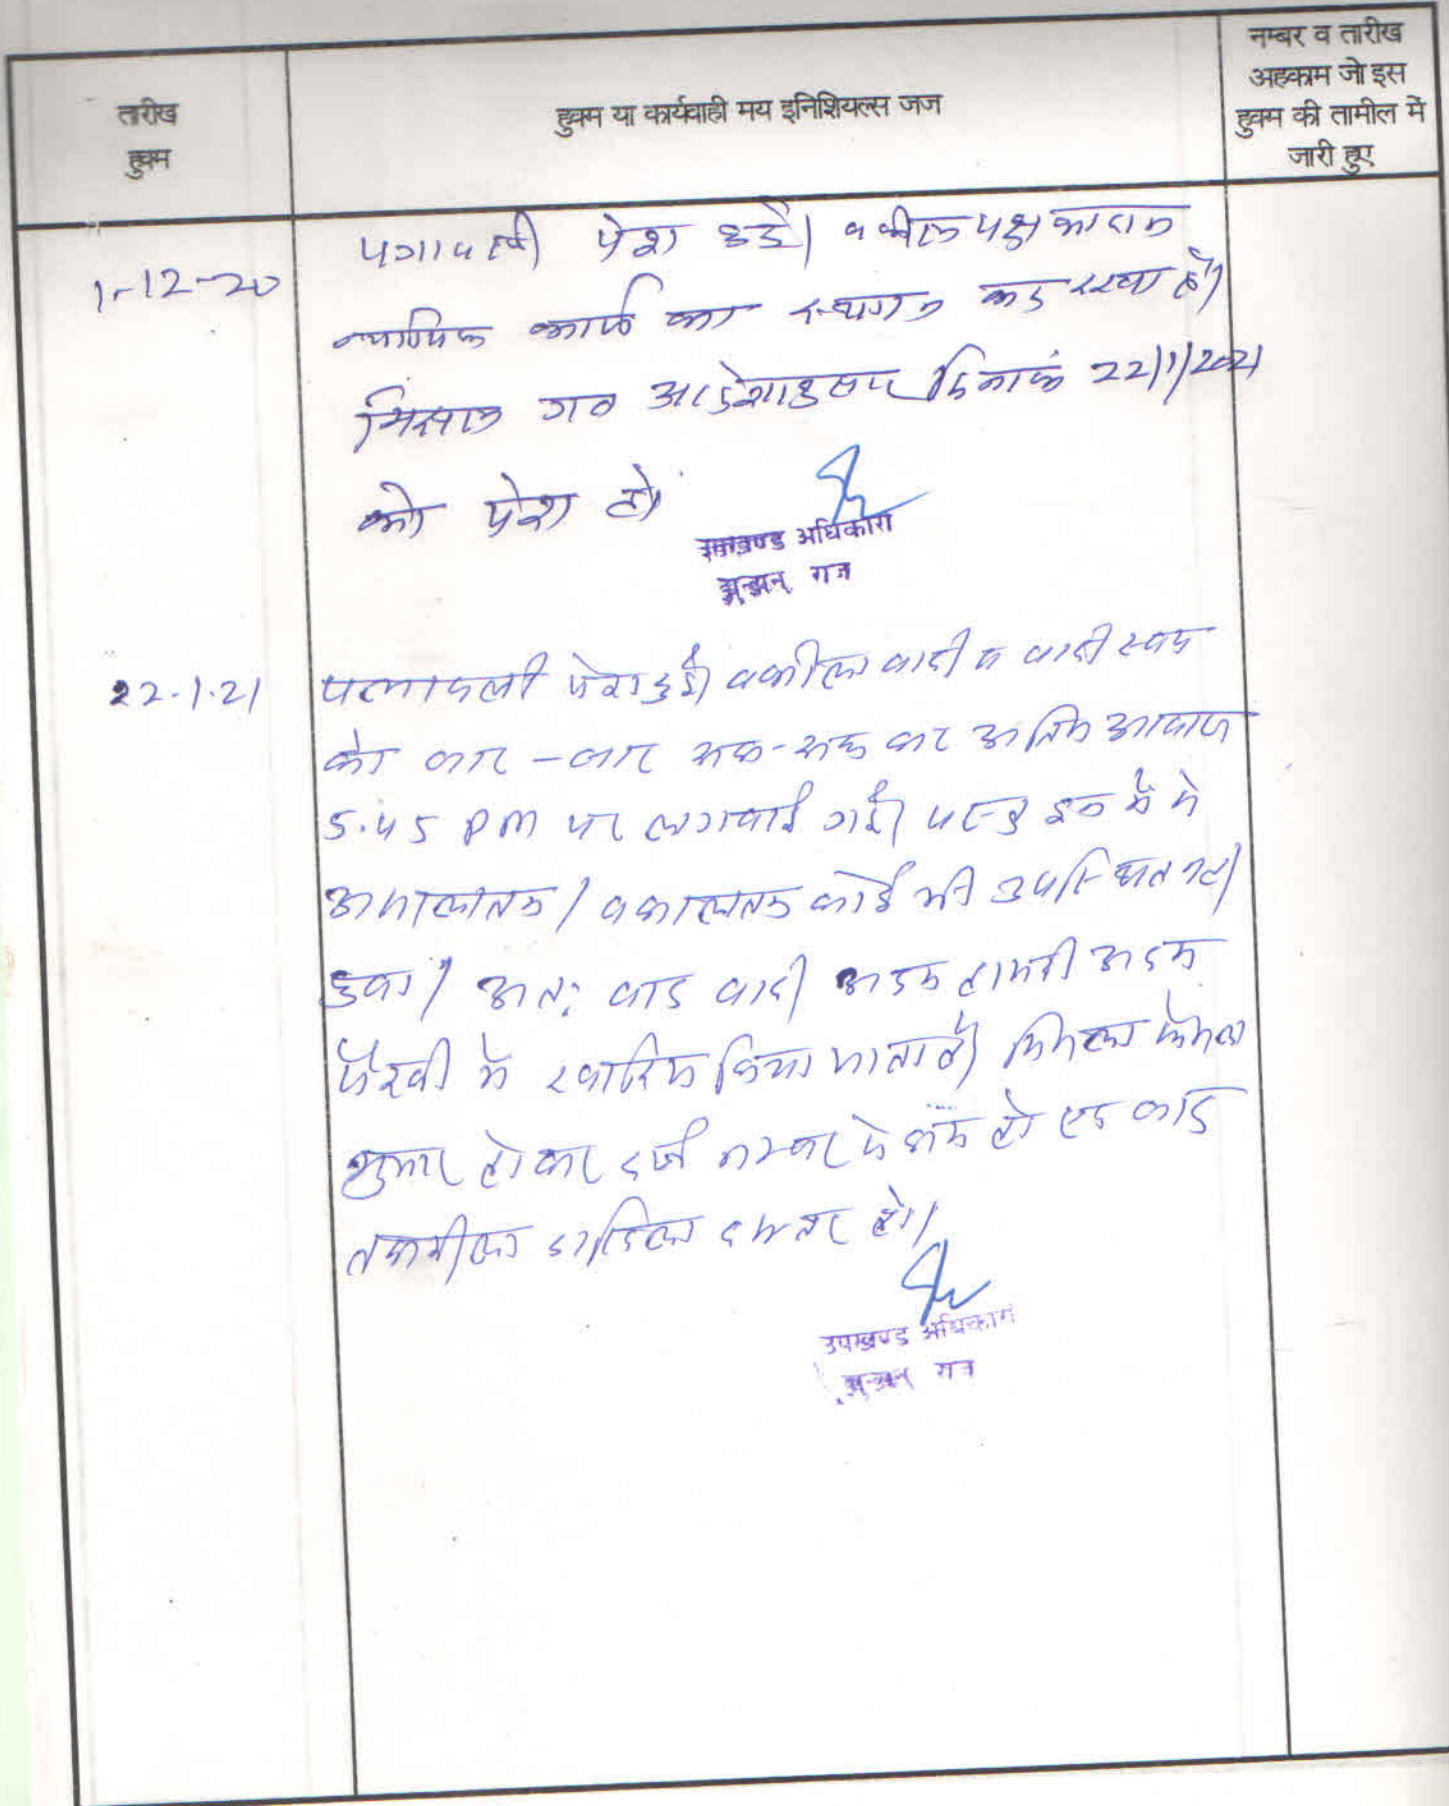 नम्बर व तारीख
अहकाम जो इस
हुक्म की तामील में
जारी हुए
तारीख
हुक्म
हुक्म या कार्यवाही मय इनिशियल्स जज
1-12-20
पत्रावली पेश हुई। वकील पक्षकारान
न्यायिक कार्य का स्थगन कर रखा है।
मिसाल गत आदेशानुसार दिनांक 22/1/2021
को पेश हो।
उपखण्ड अधिकारी
झुन्झुनू राज
22.1.21
पत्रावली पेश हुई। वकील वादी व वादी स्वयं
को बार-बार रूक-रूक कर अन्तिम आवाज
5.45 PM पर लगवाई गई। परन्तु इन में से
असालतन / वकालतन कोई भी उपस्थित नही
हुवा। अतः वाद वादी अदम हाजरी अदम
पैरवी में खारिज किया जाता है। मिसल फैसल
शुमार होकर दर्ज नम्बर से कम हो बाद
तकमील दाखिल दफ्तर हो।
उपखण्ड अधिकारी
झुन्झुनू राज